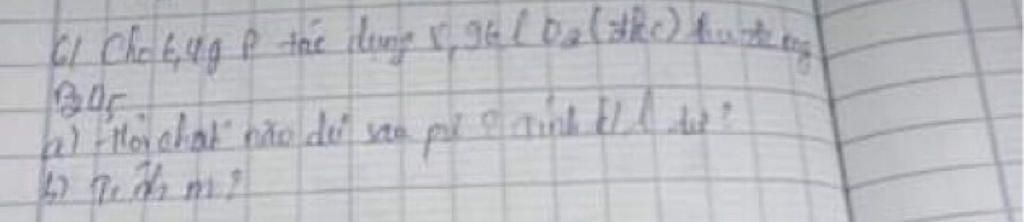 6/ Cho 6,4g P tác dụng 5,96 l O2 (đkc) thu được mg
P2O5
a) Hỏi chất nào dư sau pứ? Tính KL dư?
b) Tính m?